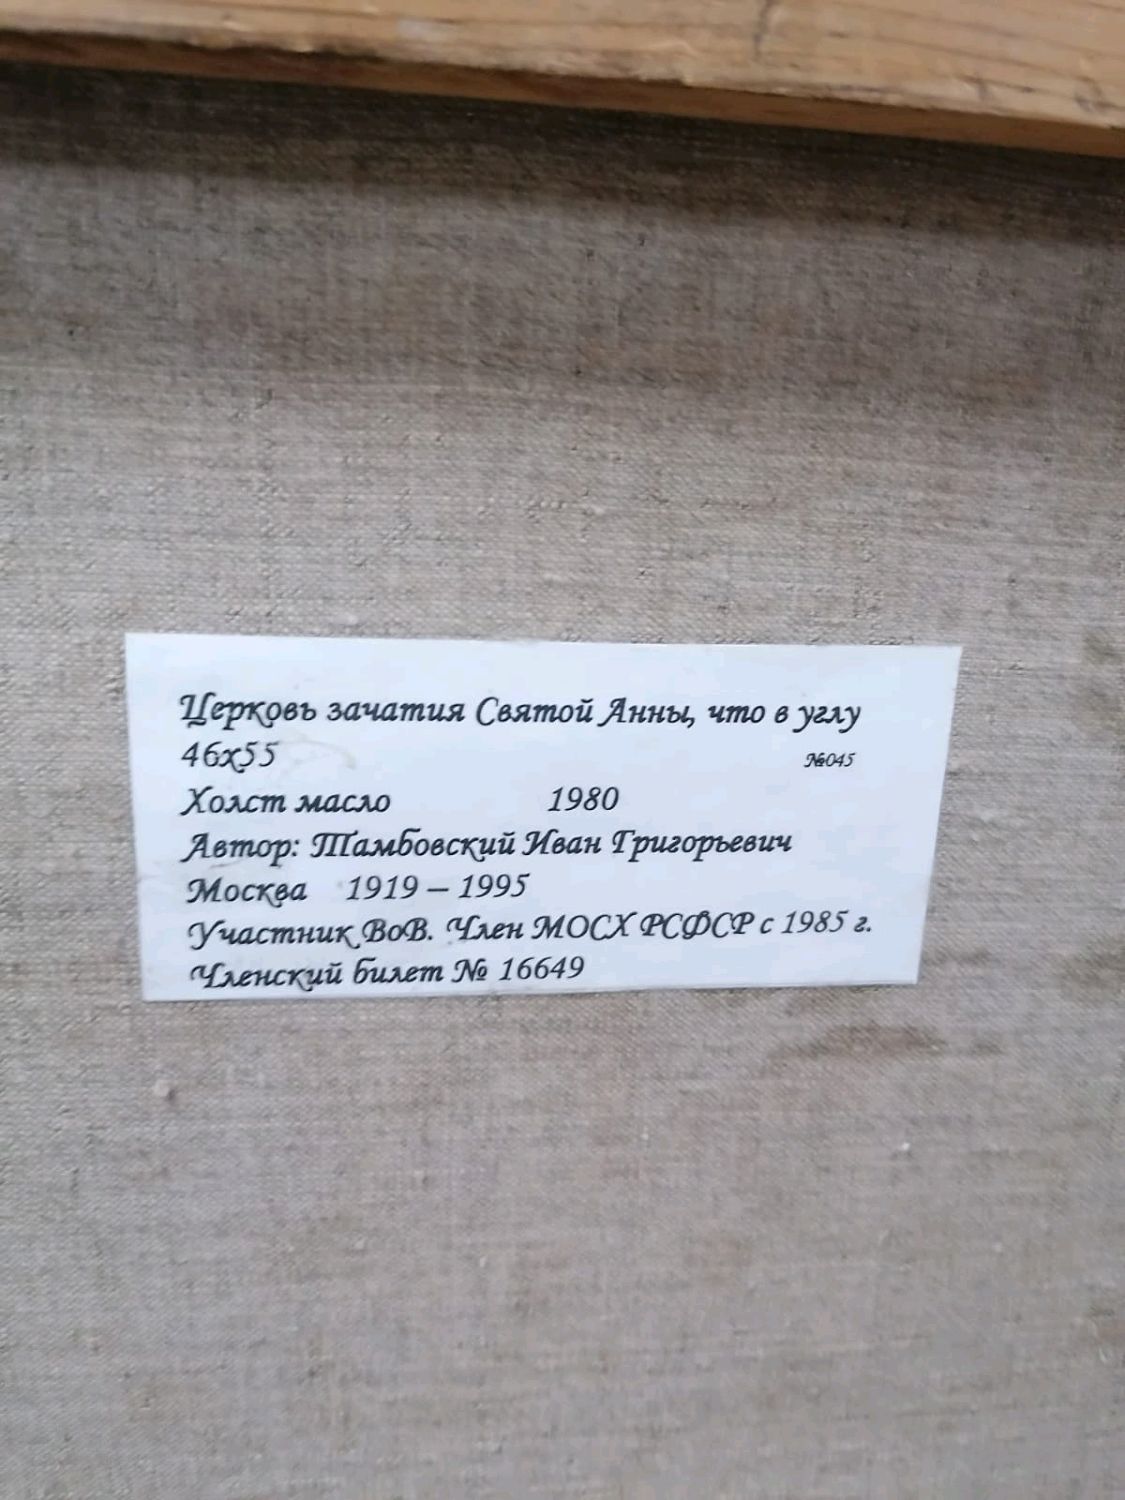 Церковь зачатия Святой Анны, что в углу
46х55 №045
Холст масло 1980
Автор: Тамбовский Иван Григорьевич
Москва 1919 – 1995
Участник ВоВ. Член МОСХ РСФСР с 1985 г.
Членский билет № 16649